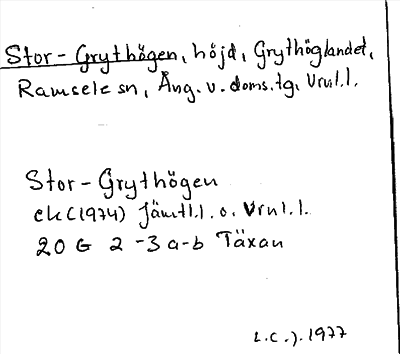 Stor-Grythögen, höjd, Grythöglandet,
Ramsele sn, Ång. v. doms.tg, Vrnl.l.
Stor-Grythögen
ek (1974) Jämtl.l. o. Vrnl.l.
20 G 2-3 a-b Täxan
L.C.J. 1977